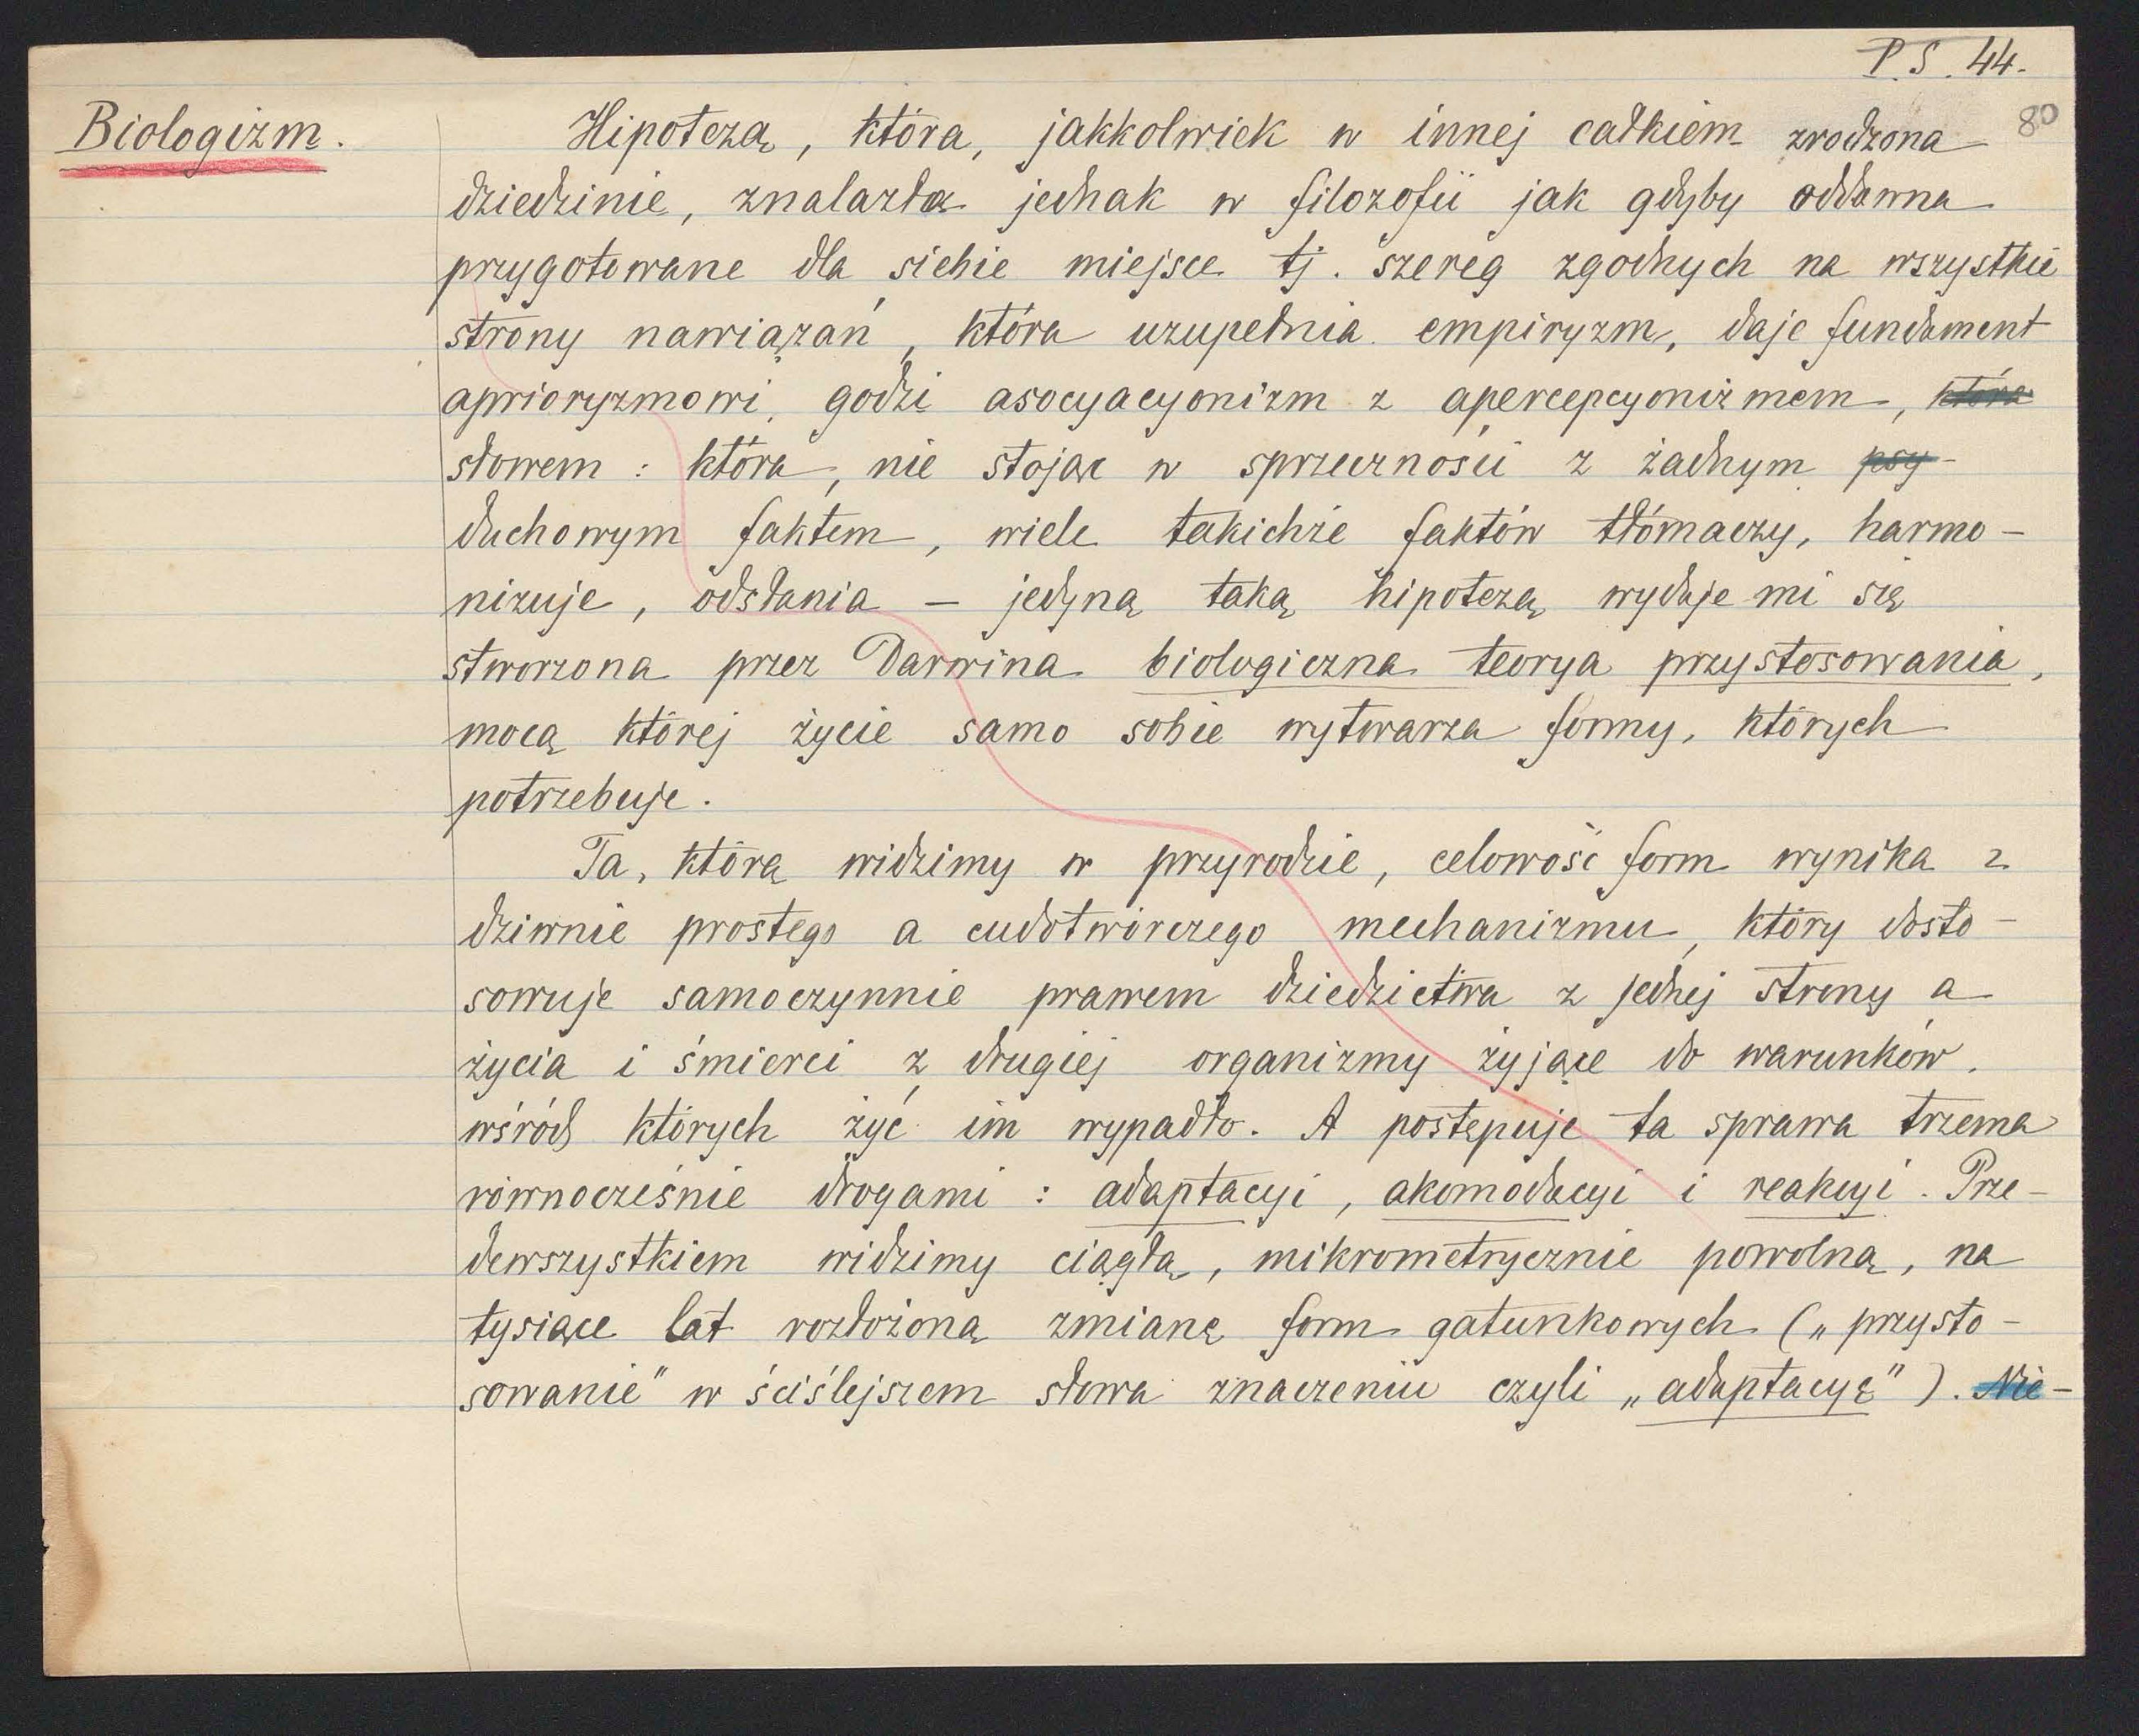 P. S. 44.
80
Biologizm.
Hipotezą, która, jakkolwiek w innej całkiem zrodzona
dziedzinie, znalazła jednak w filozofii jak gdyby oddawna
przygotowane dla siebie miejsce tj. szereg zgodnych na wszystkie
strony nawiązań, która uzupełnia empiryzm, daje fundament
aprioryzmowi, godzi asocyacyonizm z apercepcyonizmem, która
słowem: która, nie stojąc w sprzeczności z żadnym psy-
duchowym faktem, wiele takichże faktów tłómaczy, harmo-
nizuje, odsłania – jedyną taką hipotezą wydaje mi się
stworzona przez Darwina biologiczna teorya przystosowania,
mocą której życie samo sobie wytwarza formy, których
potrzebuje.
Ta, którą widzimy w przyrodzie, celowość form wynika z
dziwnie prostego a cudotwórczego mechanizmu, który dosto-
sowuje samoczynnie prawem dziedzictwa z jednej strony a
życia i śmierci z drugiej organizmy żyjące do warunków,
wśród których żyć im wypadło. A postępuje ta sprawa trzema
równocześnie drogami: adaptacyi, akomodacyi i reakcyi. Prze-
dewszystkiem widzimy ciągłą, mikrometrycznie powolną, na
tysiące lat rozłożoną zmianę form gatunkowych („przysto-
sowanie" w ściślejszem słowa znaczeniu czyli „adaptacyę"). Nie-